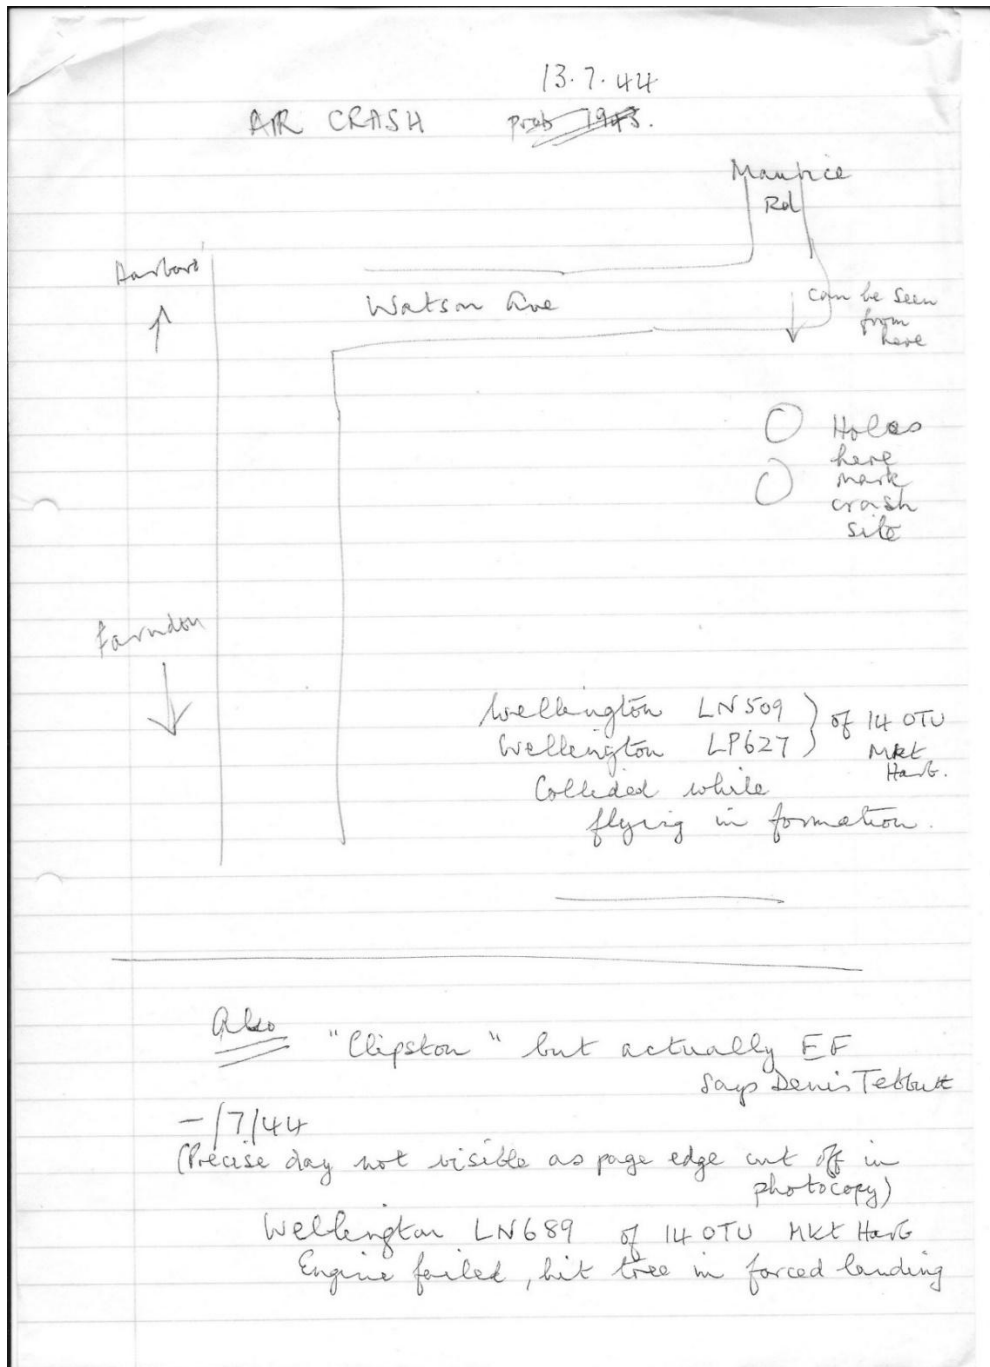 13.7.44
AIR CRASH prob 1943.
Maurice
Rd
Harboro'
Watson Ave
can be seen
from
here
Holes
here
mark
crash
site
Farndon
Wellington LN509 } of 14 OTU
Wellington LP627 } Mkt
Harb.
Collided while
flying in formation.
Also
"Clipston" but actually EF
says Denis Tebbutt
-/7/44
(Precise day not visible as page edge cut off in
photocopy)
Wellington LN689 of 14 OTU Mkt Harb
Engine failed, hit tree in forced landing